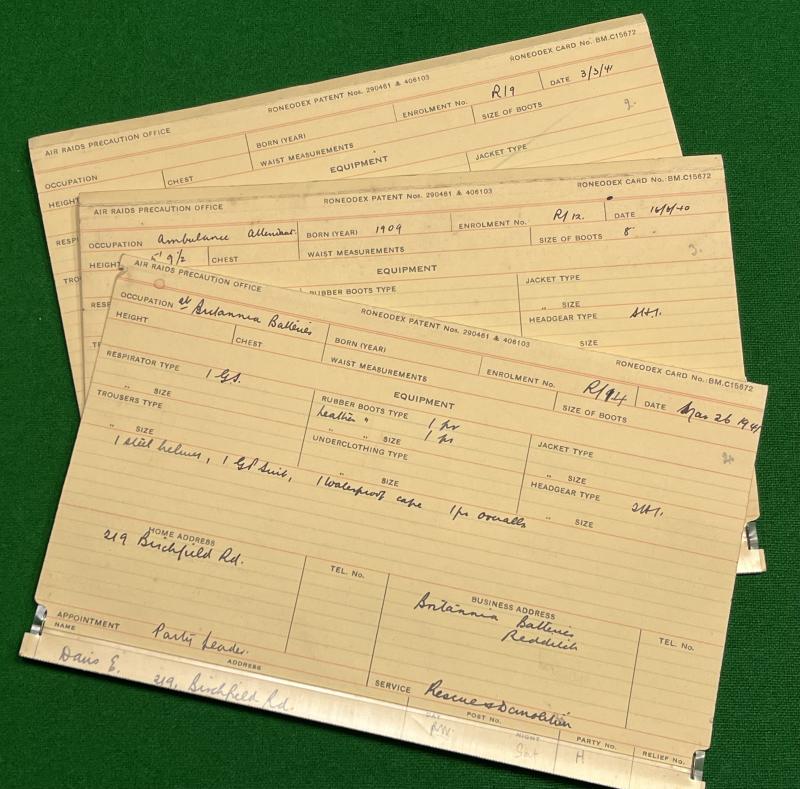 RONEODEX PATENT Nos. 290461 & 406103
RONEODEX CARD No. BM.C15672
AIR RAIDS PRECAUTION OFFICE
BORN (YEAR)
ENROLMENT No. R/9
DATE 3/3/41
OCCUPATION
CHEST
WAIST MEASUREMENTS
SIZE OF BOOTS
2.
HEIGHT
EQUIPMENT
JACKET TYPE
AIR RAIDS PRECAUTION OFFICE
RONEODEX PATENT Nos. 290461 & 406103
RONEODEX CARD No. BM.C15672
OCCUPATION Ambulance Attendant
BORN (YEAR) 1909
ENROLMENT No. R/12.
DATE 16/6/40
HEIGHT 5' 9½
CHEST
WAIST MEASUREMENTS
SIZE OF BOOTS 8
3.
EQUIPMENT
RUBBER BOOTS TYPE
JACKET TYPE
" SIZE
HEADGEAR TYPE
SIZE
AIR RAIDS PRECAUTION OFFICE
RONEODEX PATENT Nos. 290461 & 406103
RONEODEX CARD No. BM.C15672
OCCUPATION at Britannia Batteries
BORN (YEAR)
ENROLMENT No. R/94
DATE Mar 26 1941
HEIGHT
CHEST
WAIST MEASUREMENTS
SIZE OF BOOTS
RESPIRATOR TYPE 1 GS.
EQUIPMENT
" SIZE
RUBBER BOOTS TYPE 1 pr
JACKET TYPE
TROUSERS TYPE
leather " " SIZE 1 pr
" SIZE
" SIZE
UNDERCLOTHING TYPE
HEADGEAR TYPE
" SIZE
" SIZE
1 steel helmet, 1 GP Suit, 1 Waterproof cape 1 pr overalls
HOME ADDRESS
219 Birchfield Rd.
TEL. No.
BUSINESS ADDRESS
Britannia Batteries
Redditch
TEL. No.
APPOINTMENT Party Leader.
SERVICE Rescue & Demolition
NAME
ADDRESS
POST No.
PARTY No.
RELIEF No.
Davis E. 219, Birchfield Rd.
DAY
NIGHT
H